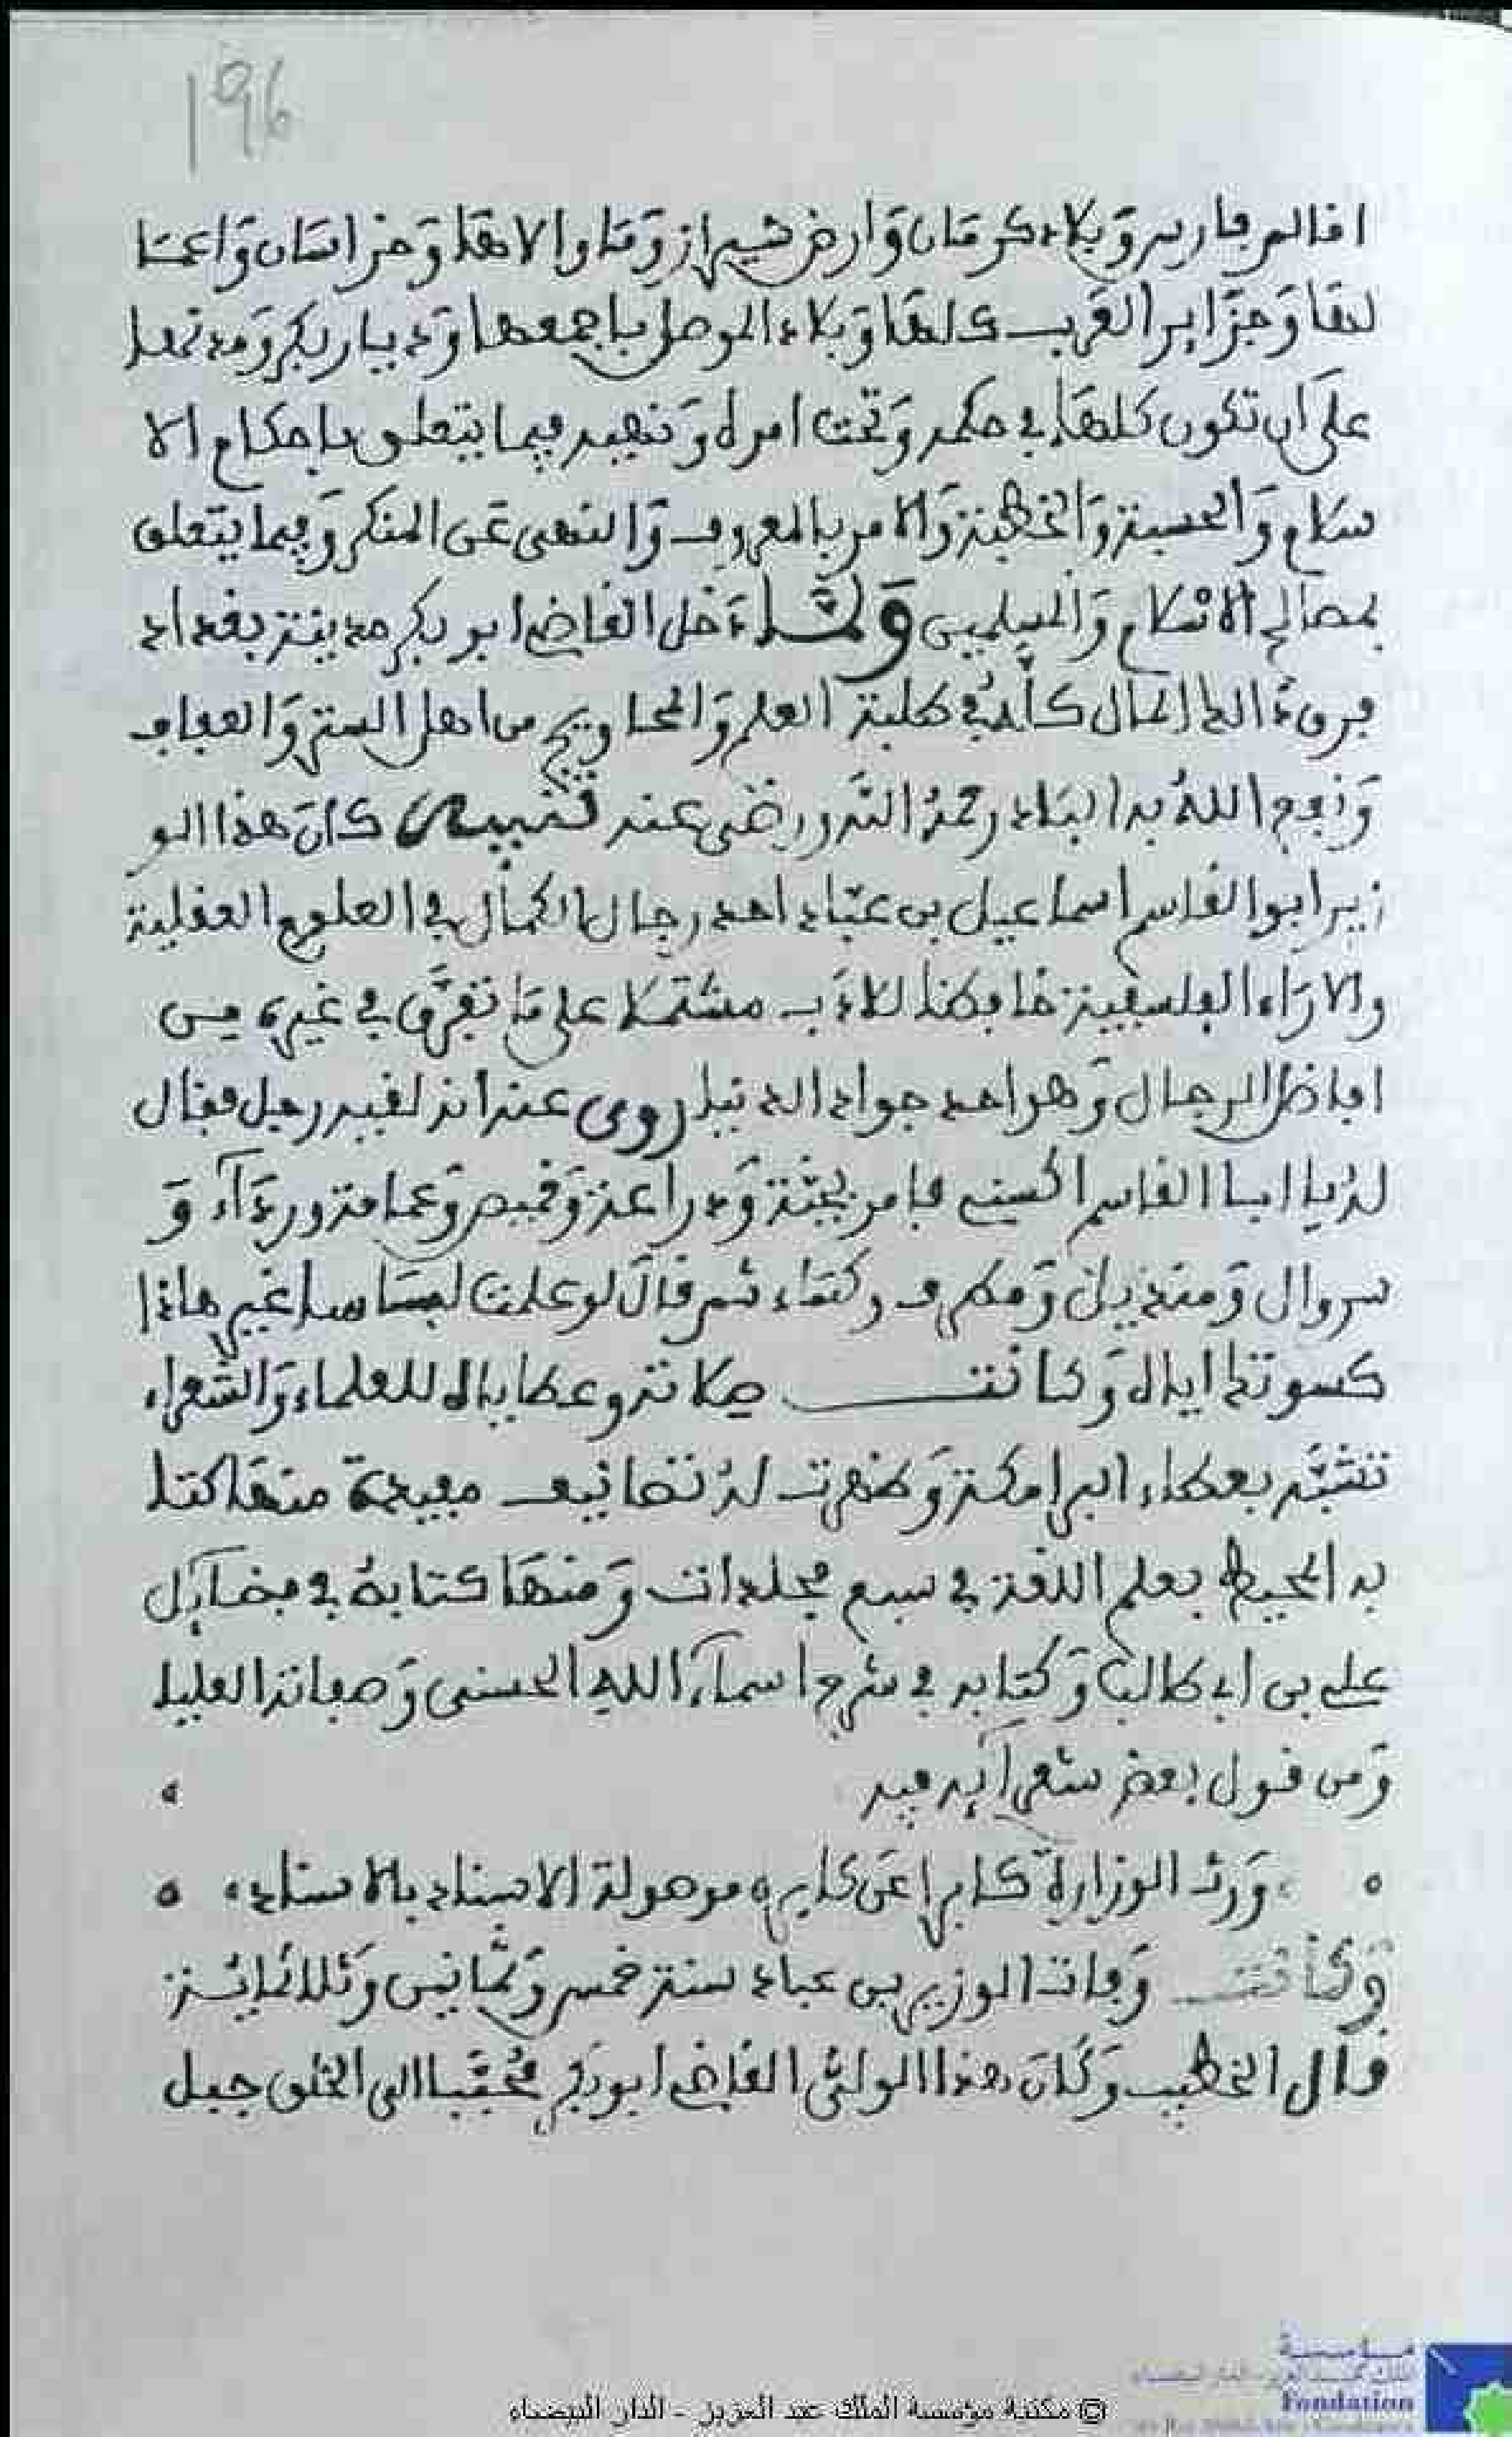 196
افاليم فارس وبلاد كرمان وارض شيراز وما والاها وخراسان واعما
لها وجزاير العرب كلها وبلاد الموصل باجمعها وديار بكر
على ان تكون كلها في حكمه وتحت امره ونهيه فيما يتعلق باحكام الا
سلام والحسبة والخطبة والامر بالمعروف والنهى عن المنكر وفيما يتعلق
بمصالح الاسلام والمسلمين ولما دخل القاضي ابو بكر مدينة بغداد
فرق ذالك المال كله في طلبة العلم والمحاويج من اهل الستر والعفاف
ونفع الله به البلاد رحمه الله ورضى عنه تنبيه كان هذا الو
زير ابوا القاسم اسماعيل بن عباد احد رجال الكمال في العلوم العقلية
والاراء الفلسفية حافظا للادب مشتملا على ما تفرق في غيره من
افاضل الرجال وهو احد جواد الدنيا روى عنه انه لقيه رجل فقال
له يا ابا القاسم اكسني فامر بجبة ودراعة وقميص وعمامة ورداء و
سروال ومنديل ومطرف وكساء ثم قال لو علمت لباسا غير هاذا
كسوتك اياه وكانت صلاته وعطاياه للعلماء والشعراء
تشبه بعطاء البرامكة وظهرت له تصانيف مفيدة منها كتا
به المحيط بعلم اللغة في سبع مجلدات ومنها كتابه في فضآئل
علي بن ابي طالب وكتابه في شرح اسمآء الله الحسنى وصفاته العليا
ومن قول بعض شعرآيه فيه
ورث الوزارة كابرا عن كابر ه موصولة الاسناد بالاسناد
وكانت وفات الوزير بن عباد سنة خمس وثمانين وثلاثمائة
قال الخطيب وكان هذا الولي القاضي ابو بكر محببا الى الخلق جبل
مؤسسة
Fondation
© مكتبة مؤسسة الملك عبد العزيز - الدار البيضاء